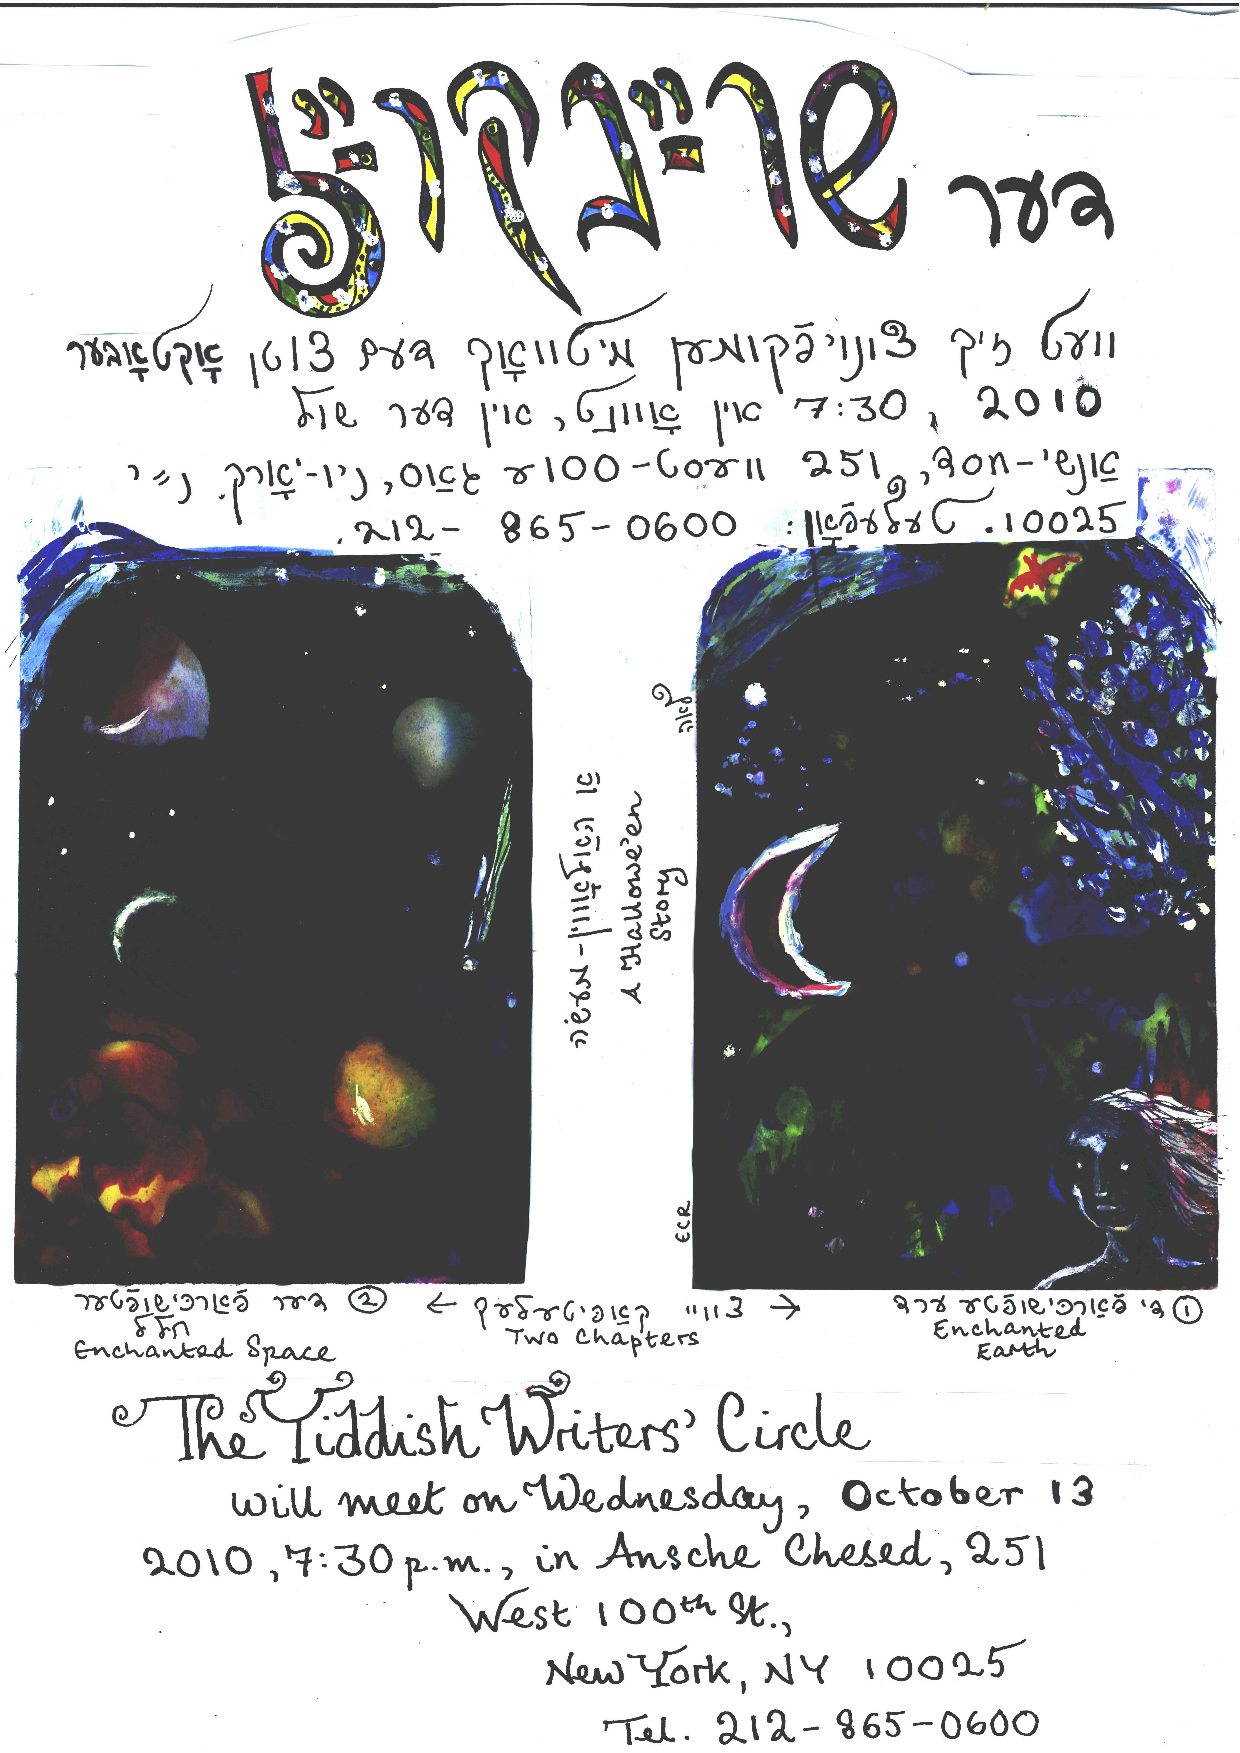 דער שרײַבקרײַז
וועט זיך צונויפֿקומען מיטוואָך דעם 13טן אָקטאָבער
2010, 7:30 אין אָוונט, אין דער שול
אַנשי-חסד, 251 וועסט-100ער גאַס, ניו-יאָרק, נ״י
10025. טעלעפֿאָן: 212-865-0600.
לאה
אַ האַלאָווין-מעשׂה
A Hallowe'en
Story
ECR
① די פֿאַרכּישופֿטע ערד
Enchanted
Earth
← צוויי קאַפּיטעלעך →
Two Chapters
② דער פֿאַרכּישופֿטער
חלל
Enchanted Space
The Yiddish Writers' Circle
will meet on Wednesday, October 13
2010, 7:30 p.m., in Ansche Chesed, 251
West 100th St.,
New York, NY 10025
Tel. 212-865-0600